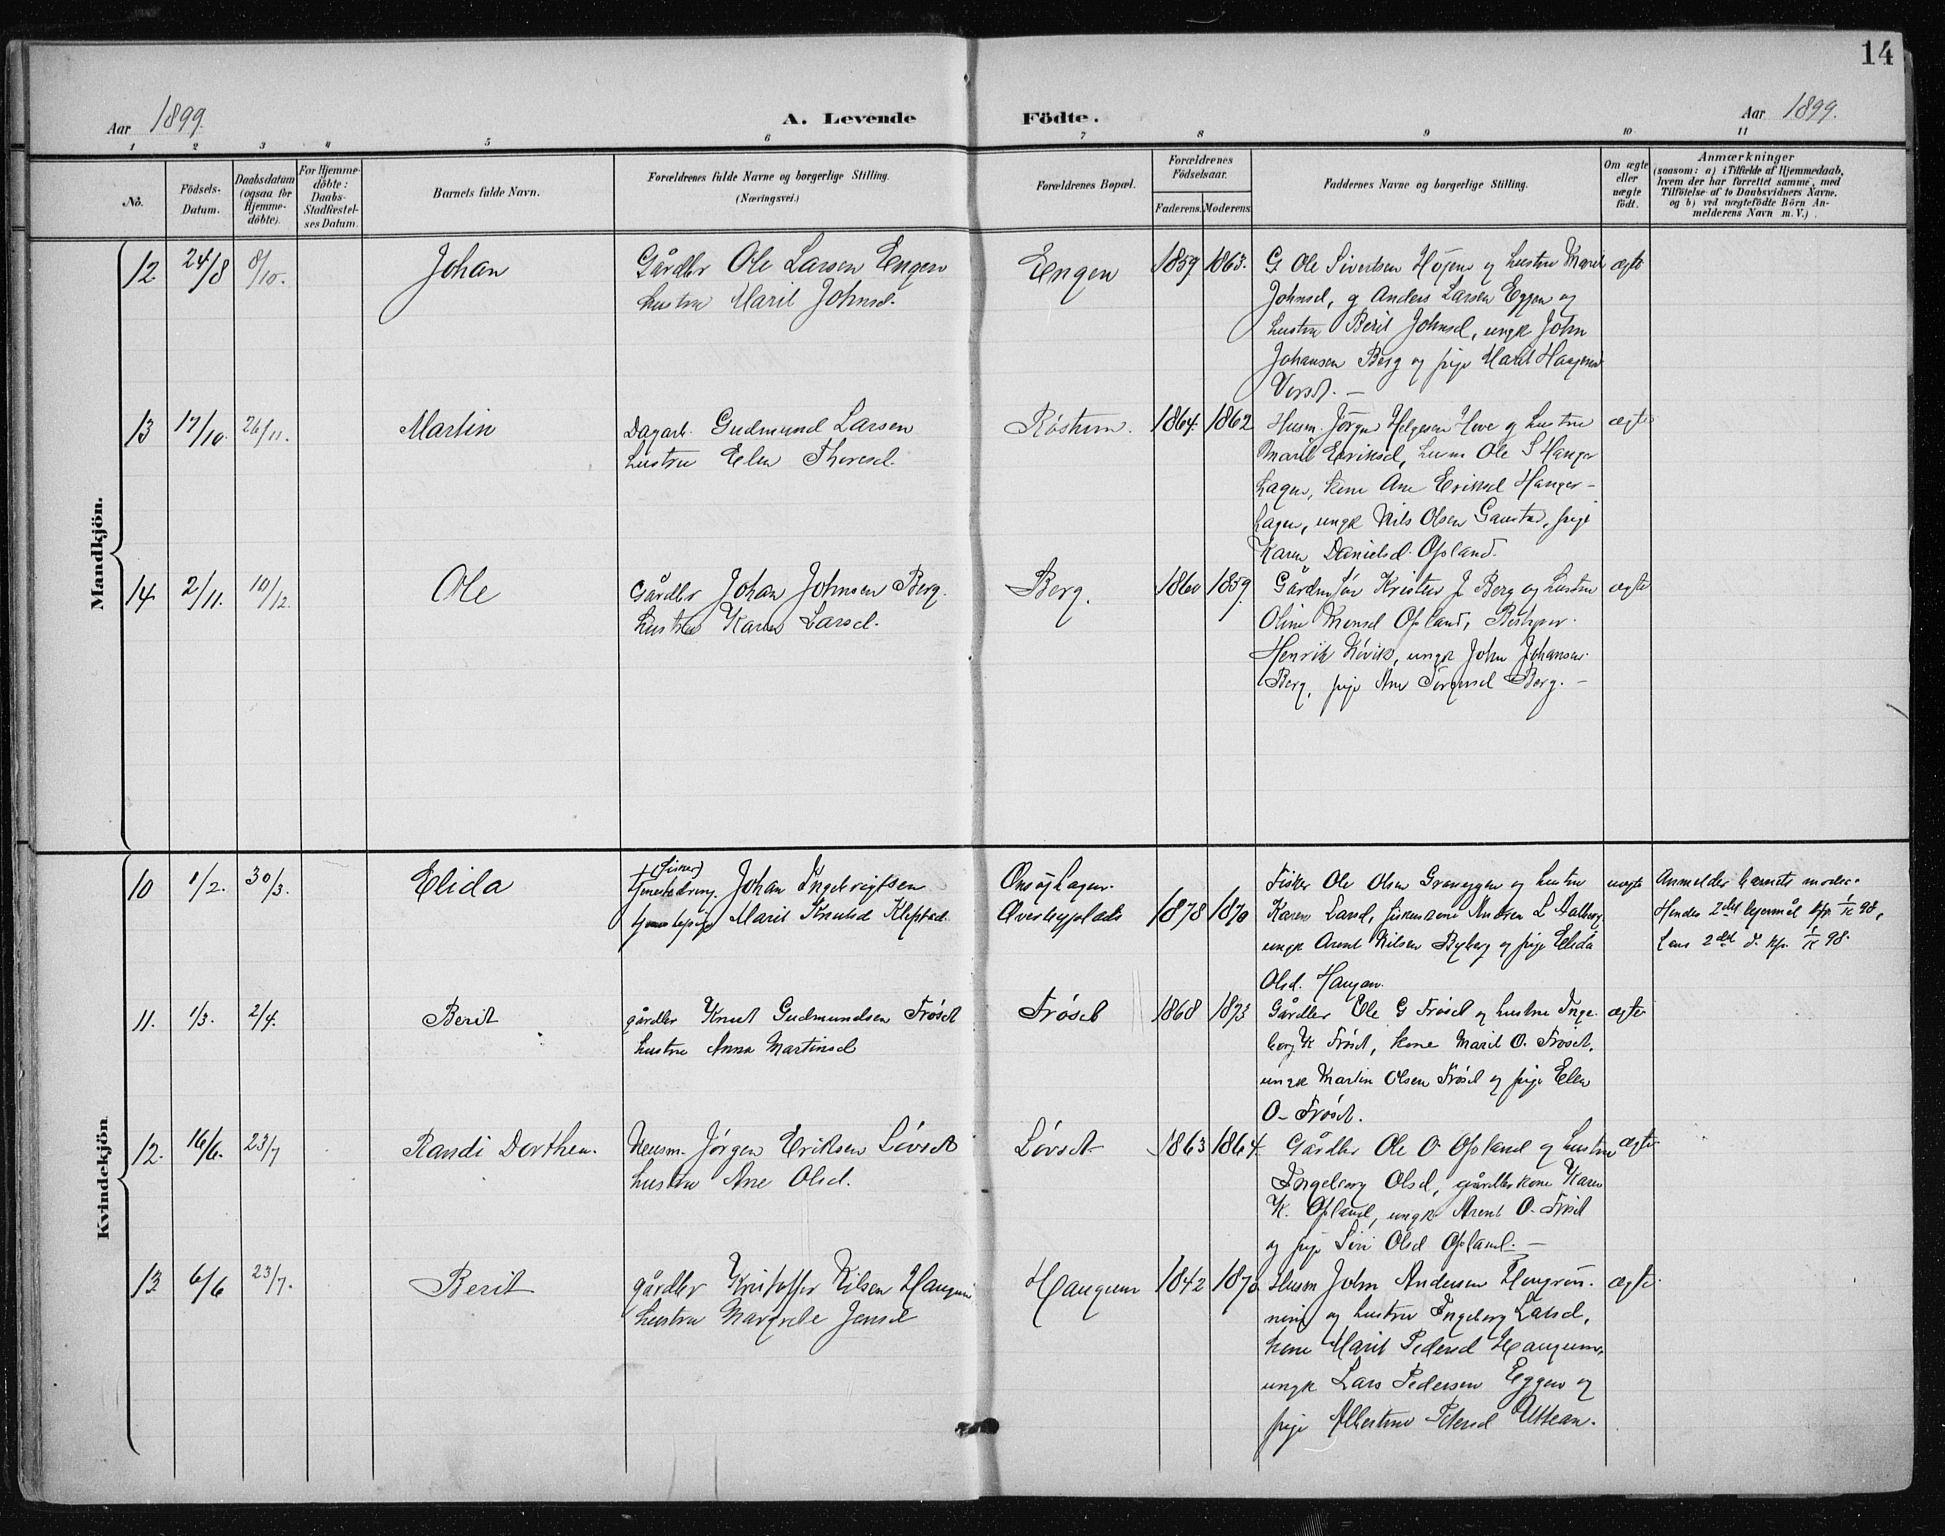 14
Aar 1899
A. Levende Födte.
Aar 1899.
1 2 3 4 5 6 7 8 9 10 11
No.
Födsels-Datum.
Daabsdatum (ogsaa for Hjemme-döbte).
For Hjemme-döbte: Daabs-Stadfæstel-ses Datum.
Barnets fulde Navn.
Forældrenes fulde Navne og borgerlige Stilling.
(Næringsvei.)
Forældrenes Bopæl.
Forældrenes Födselsaar.
Faderens. Moderens.
Faddernes Navne og borgerlige Stilling.
Om ægte eller uægte födt.
Anmærkninger
(saasom: a) i Tilfælde af Hjemmedaab,
hvem der har forrettet samme, med
Tilföielse af to Daabsvidners Navne.
og b) ved uægtefödte Börn An-
melderens Navn m. V.)
Mandkjön.
12 24/8 8/10. Johan Gårdbr Ole Larsen Engen Engen 1859 1863. G Ole Sivertsen Højem og hustru Marit ægte
hustru Marit Johnsd. Johnsd, g Anders Larsen Eggen og
hustru Berit Johnsd, ungk John
Johansen Berg og pige Marit
13 17/10. 26/11. Martin Dagarb. Gudmund Larsen 1864. 1862 Husm. Jørgen Helgesen Hove og hustru ægte
hustru Elen Thoresd. Marit Eriksd, husm Ole S Hanger
hagen, kone Ane Eriksd Hanger-
hagen, ungk Nils Olsen Gaustad, pige
Karen Danielsd. Opland.
14. 2/11. 10/12. Ole Gårdbr Johan Johnsen Berg. Berg. 1860 1859. Kristen J Berg og hustru ægte
hustru Karen Larsd. Oline Monsd Opland,
Henrik Kövik, ungk John Johansen
Berg, pige Ane Berg. -
Kvindekjön
10 1/2. 30/3. Elida (fisker) Johan Ingebrigtsen Fisker Ole Olsen og hustru uægte Anmelder barnets moder.
Marit Knutsd Klepstad. 1878 1870 Karen Sand, Andrea L Aalberg Hendes 2det lejermål
ungk Arent Nilsen Ryberg og pige Elida 98.
Olsd. Haugan.
11. 1/3. 2/4. Berit gårdbr Knut Gudmundsen Fröset Fröset 1868 1873 Gårdbr Ole G Fröset og hustru Inge- ægte
hustru Anna Martinsd borg K Fröset, kone Marit O. Fröset,
ungk Martin Olsen Fröset og pige Elen
O. Fröset.
12. 16/6. 23/7 Randi Dorthea. Husm. Jørgen Eriksen Lövset Lövset 1863 1864. Gårdbr Ole O Opland og hustru ægte
hustru Ane Olsd. Ingeborg Olsd, gårdbrkone Karen
K. Opland, ungk Arent O. Fröset
og pige Siri Olsd Opland. -
13. 6/6 23/7. Berit gårdbr Kristoffer Nilsen Haugum Haugum 1842 1870 Husm John Andersen ægte
hustru Margrete Jensd og hustru Ingeborg Larsd,
kone Marit Pedersd Haugum,
ungk Lars Pedersen Eggen og
pige Albertine Petersd